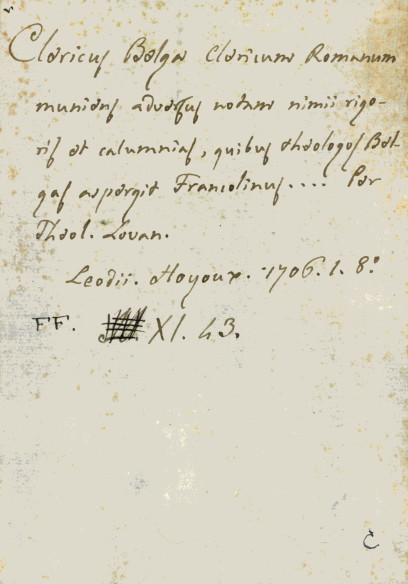 Clericus Belga Clericum Romanum
muniens adversus notam nimii rigo-
ris et calumnias, quibus theologos Bel-
gas aspergit Francolinus.... Per
theol. Lovan.
Leodii. Hoyoux. 1706. 1. 8°
FF. XI. 43.
C